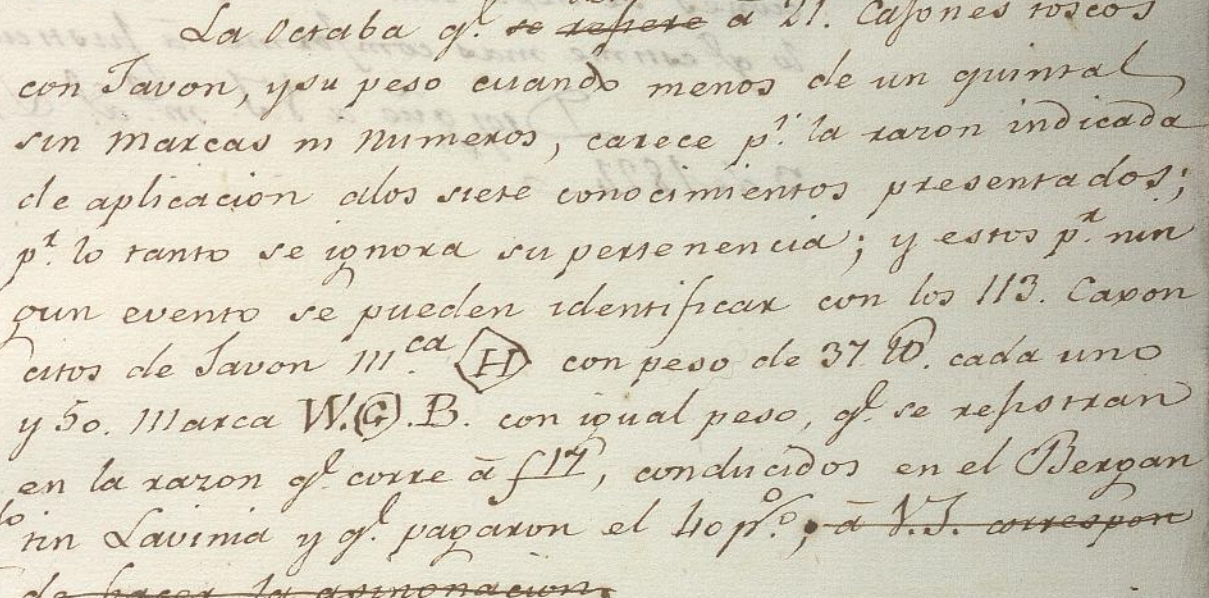 La Octaba q.e se refiere á 21. Cajones toscos
con Javon, y su peso cuando menos de un quintal
sin marcas ni numeros, carece p.r la razon indicada
de aplicacion alos siete conocimientos presentados;
p.r lo tanto se ignora su pertenencia; y estos p.r nin
gun evento se pueden identificar con los 113. Caxon
citos de Javon m.ca H con peso de 37 lb. cada uno
y 50. marca W.(G).B. con igual peso, q.e se rejistran
en la razon q.e corre á f 17, conducidos en el Bergan
tin Lavinia y q.e pagaron el 40 p.o%; á V.S. correspon
de hacer la asignonacion.